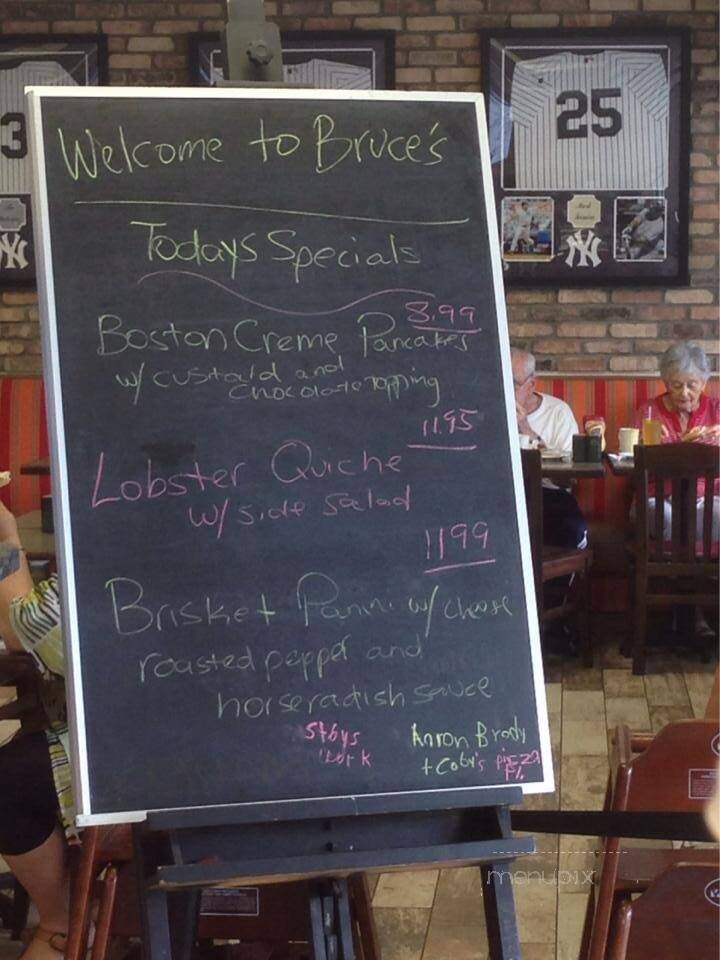 Welcome to Bruce's
Todays Specials
8.99
Boston Creme Pancakes
w/ custard and
chocolate topping
11.95
Lobster Quiche
w/ side salad
1199
Brisket Panini w/ cheese
roasted pepper and
horseradish sauce
Aaron Brody
+ Coby's pizza
25
3
NY
NY
menupix